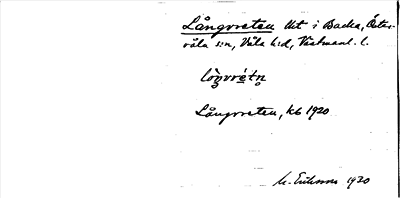 Långvreten Ut i Backa, Öster-
våla s:n, Våla h:d, Västmanl. l.
lòŋvré̀tn̥
Långvreten, kb 1920
M. Eriksson 1920